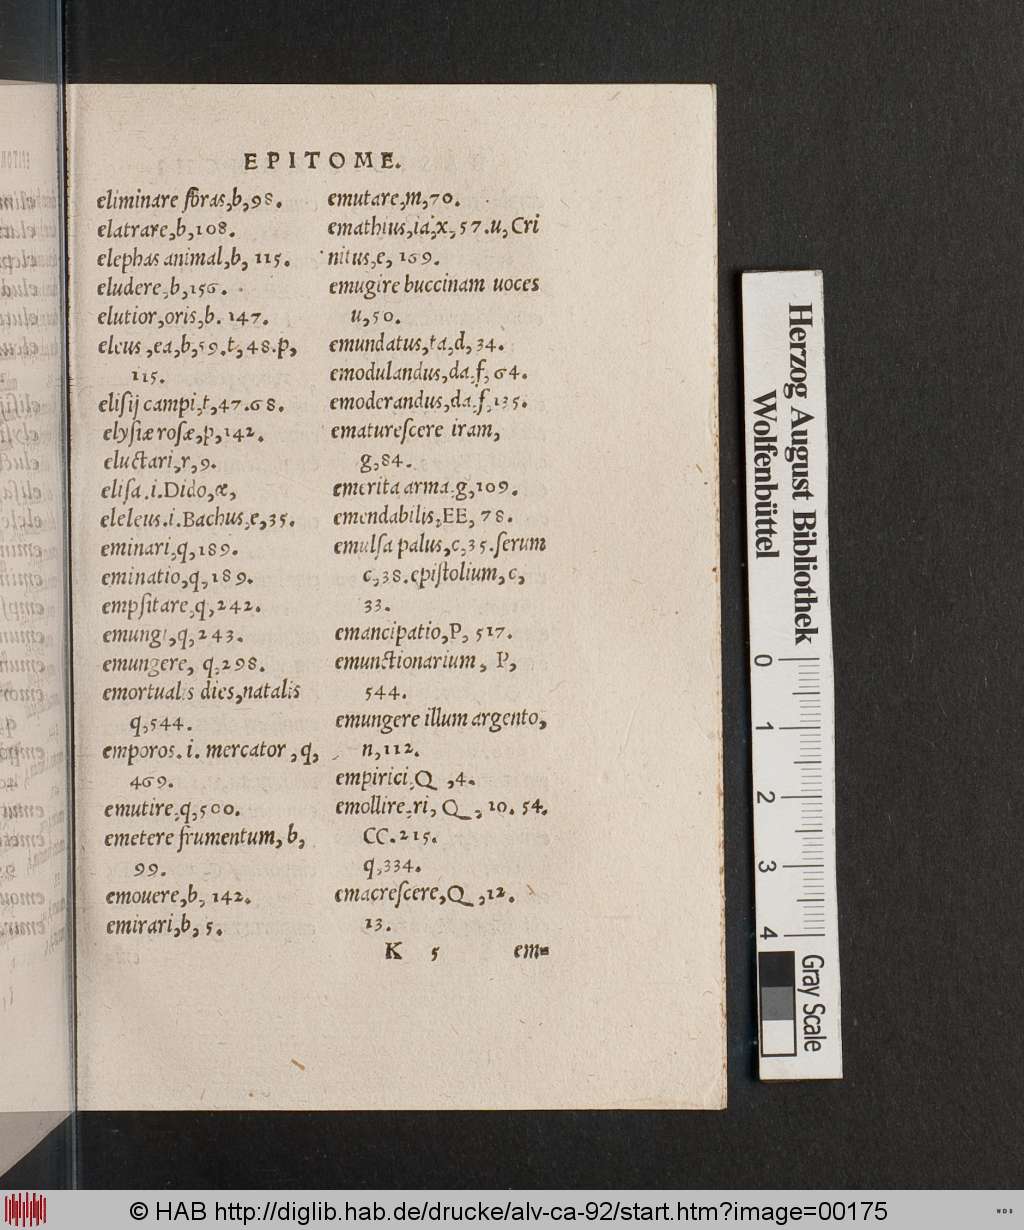 EPITOME.
eliminare foras,b,98.
elatrare,b,108.
elephas animal,b, 115.
eludere,b,156.
elutior,oris,b. 147.
eleus,ea,b,59.t,48.p,
115.
eliſij campi,t,47.68.
elyſiæ roſæ,p,142.
eluctari,r,9.
eliſa.i.Dido,æ,
eleleus.i.Bachus,e,35.
eminari,q,189.
eminatio,q,189.
empſitare,q,242.
emungi,q,243.
emungere, q,298.
emortualis dies,natalis
q,544.
emporos.i. mercator,q,
469.
emutire,q,500.
emetere frumentum, b,
99.
emouere,b, 142.
emirari,b, 5.
emutare,m,70.
emathius,ia,x,57.u,Cri
nitus,e, 169.
emugire buccinam uoces
u,50.
emundatus,ta,d,34.
emodulandus,da,f,64.
emoderandus,da,f,135.
ematureſcere iram,
g,84.
emerita arma,g,109.
emendabilis,EE, 78.
emulſa palus,c,35.ſerum
c,38.epiſtolium,c,
33.
emancipatio,P, 517.
emunctionarium, P,
544.
emungere illum argento,
n,112.
empirici,Q ,4.
emollire,ri, Q, 10. 54.
CC.215.
q,334.
emacreſcere,Q,12.
13.
K 5 em=
Herzog August Bibliothek
Wolfenbüttel
0 1 2 3 4
Gray Scale
© HAB http://diglib.hab.de/drucke/alv-ca-92/start.htm?image=00175